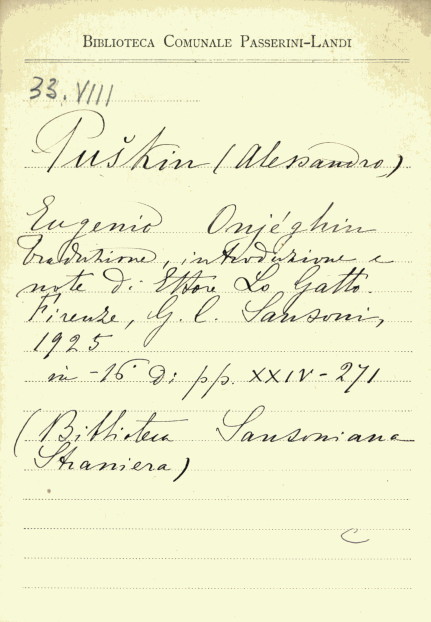 BIBLIOTECA COMUNALE PASSERINI-LANDI
33.VIII
Puškin (Alessandro)
Eugenio Onjéghin
traduzione, introduzione e
note di Ettore Lo Gatto.
Firenze, G. C. Sansoni,
1925
in-16° di pp. XXIV-271
(Biblioteca Sansoniana
Straniera)
C